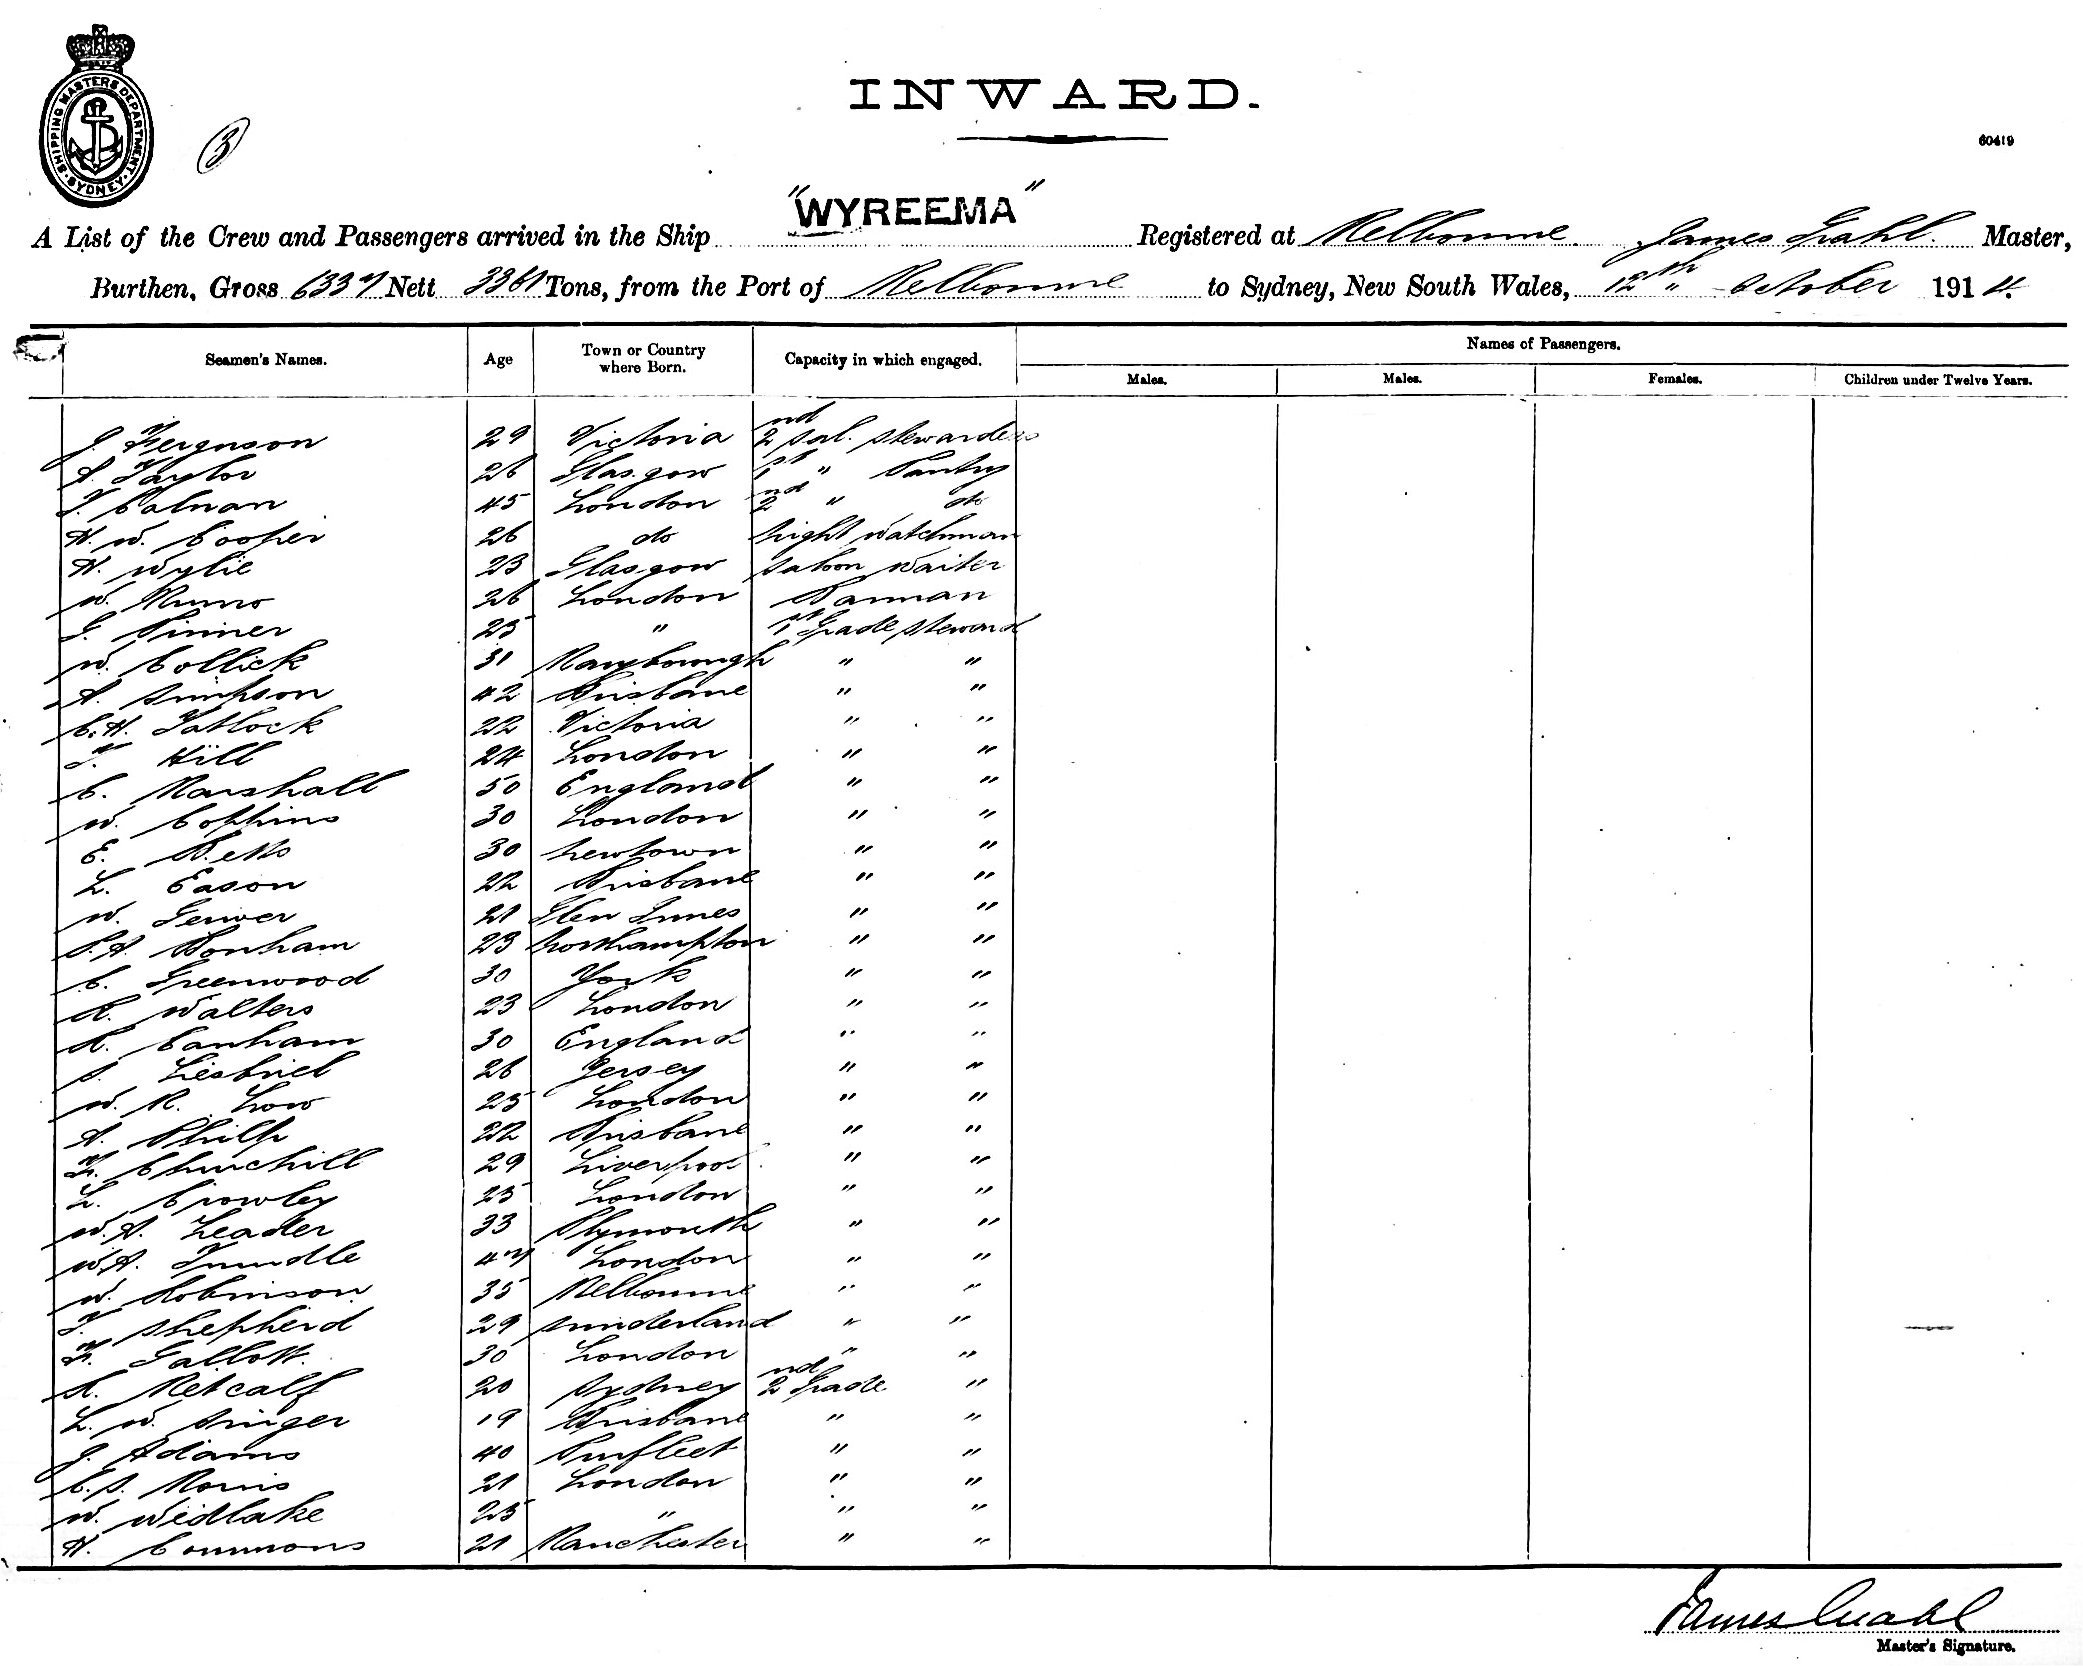 SHIPPING MASTERS DEPARTMENT
SYDNEY
3
INWARD.
60419
A List of the Crew and Passengers arrived in the Ship "WYREEMA" Registered at Melbourne James Grahl. Master,
Burthen, Gross 6337 Nett 3361 Tons, from the Port of Melbourne to Sydney, New South Wales, 12th " October 1914.
Seamen's Names. Age Town or Country where Born. Capacity in which engaged. Names of Passengers.
Males. Males. Females. Children under Twelve Years.
J. Ferguson 29 Victoria 2nd Sal. Stewardess
A. Taylor 26 Glasgow 1st " Pantry
T. Calnan 45 London 2nd " do
H. W. Cooper 26 do Night Watchman
H. Wylie 23 Glasgow Saloon Waiter
W. Munro 26 London Barman
G. Pinner 25 " 1st Grade Steward
W. Collick 31 Maryborough " "
A. Simpson 42 Brisbane " "
C. H. Tatlock 22 Victoria " "
T. Hill 24 London " "
C. Marshall 50 England " "
W. Coppins 30 London " "
E. Betts 30 Newtown " "
L. Eason 22 Brisbane " "
W. 21 Glen Innes " "
P. A. Bonham 23 Northampton " "
C. Greenwood 30 York " "
R. Walters 23 London " "
R. Canham 30 England " "
S. 26 Jersey " "
W. R. Low 25 London " "
A. Philp 22 Brisbane " "
F. Churchill 29 Liverpool " "
L. Crowley 25 London " "
W. A. Leader 33 Plymouth " "
W. A. Trundle 47 London " "
W. Robinson 35 Melbourne " "
T. Shepherd 29 Sunderland " "
F. Gallott. 30 London " "
R. Metcalf 20 Sydney 2nd Grade "
L. W. Singer 19 Brisbane " "
J. Adams 40 Purfleet " "
C. S. Morris 21 London " "
W. Widlake 25 " " "
H. Commons 21 Manchester " "
James Grahl
Master's Signature.